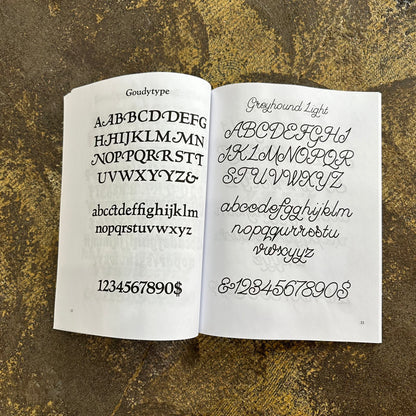 Goudytype
AABBCDDEFGG
HHIJKLMMN
NOPPQRRSTT
UVWXYYZ&
abcctdeffighijklm
nopqrstuvwxyz
1234567890$
Greyhound Light
ABCDEFGHI
JKLMNOPQR
STUVWXYZ
abcdefghijklm
nopqrrstu
vwxyz
&1234567890$